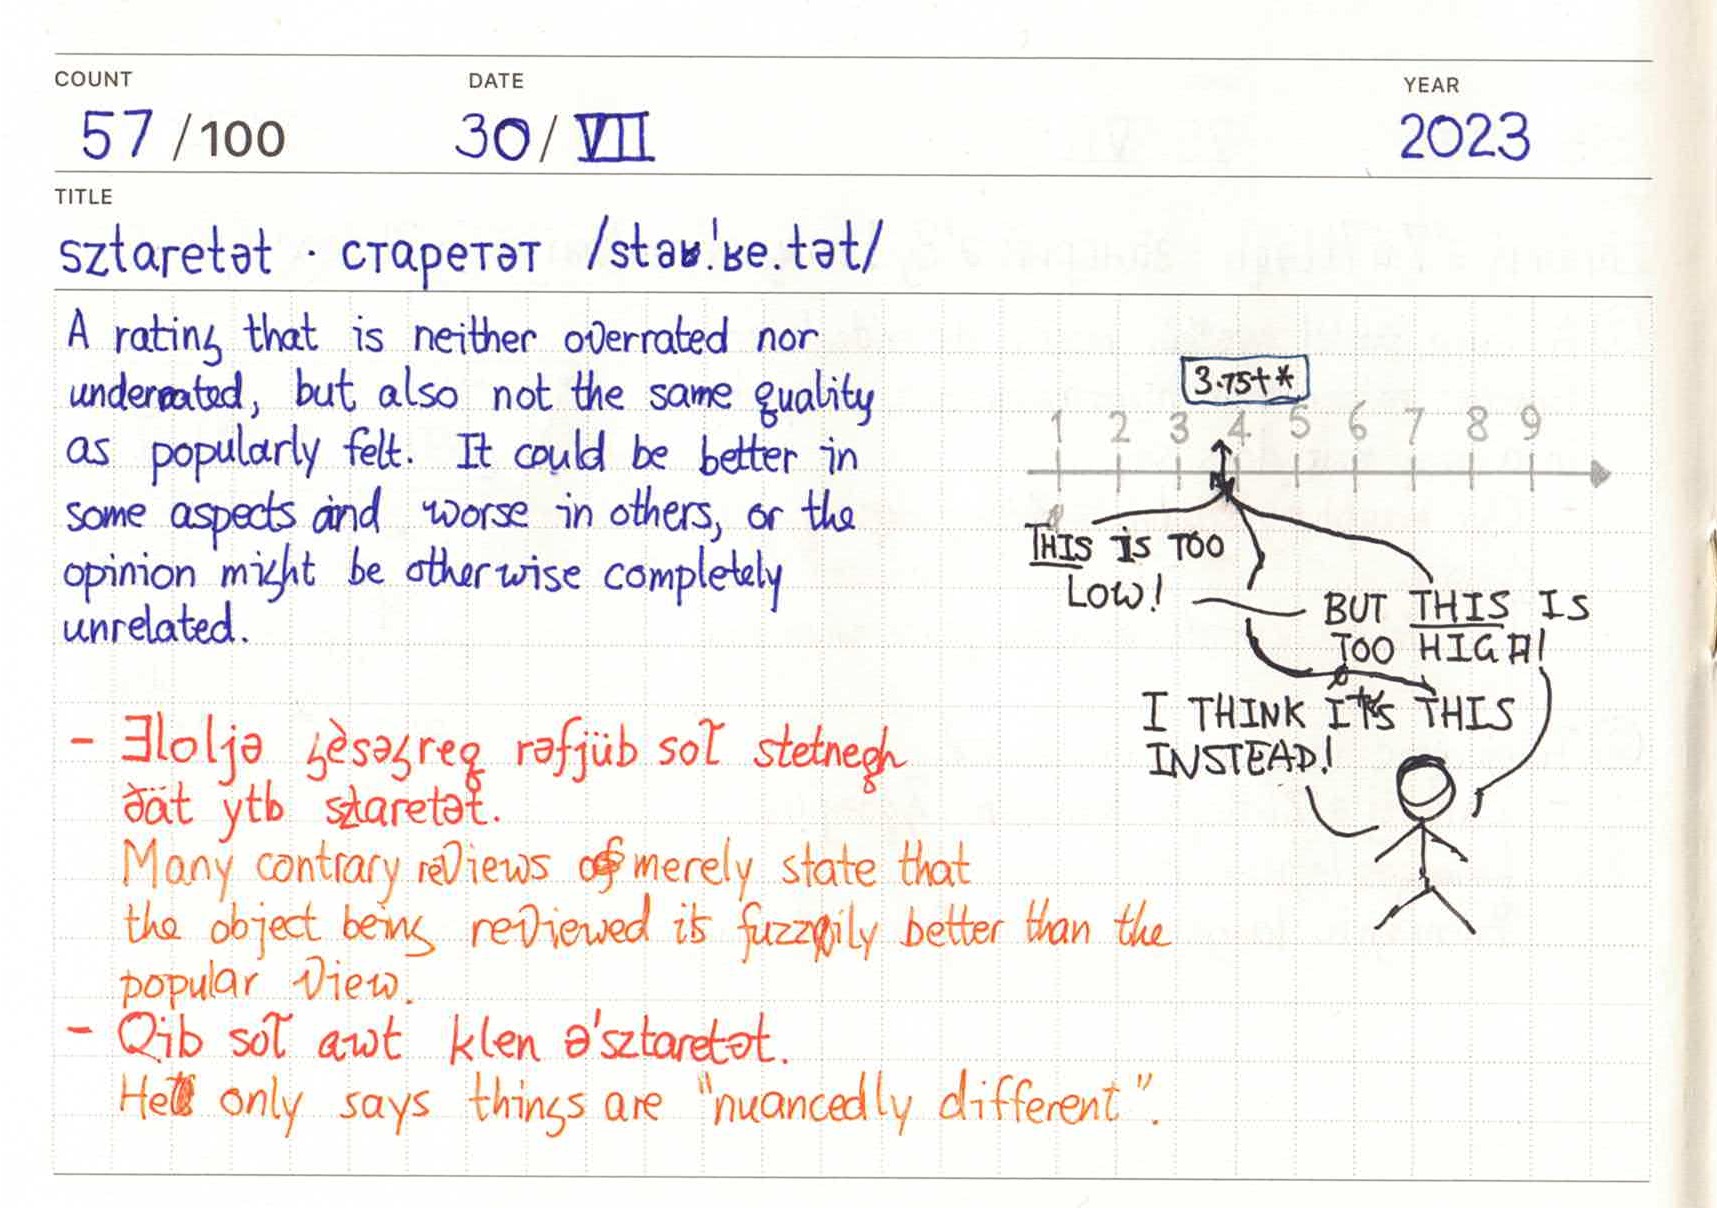 COUNT DATE YEAR
57 /100 30/ VII 2023
TITLE
sztaretət · старетәт /staʁ.ˈʁe.tət/
A rating that is neither overrated nor
underrated, but also not the same quality
as popularly felt. It could be better in
some aspects and worse in others, or the
opinion might be otherwise completely
unrelated.
3.75+*
1 2 3 4 5 6 7 8 9
THIS IS TOO
LOW!
BUT THIS IS
TOO HIGH!
I THINK IT'S THIS
INSTEAD!
- rəfjüb stetnegh
ðät ytb sztaretət.
Many contrary reviews merely state that
the object being reviewed is fuzzily better than the
popular view.
- Qib awt klen ə'sztaretət.
He only says things are "nuancedly different".